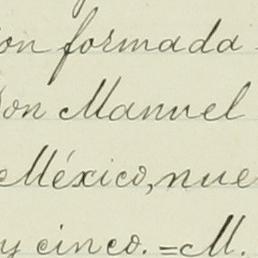 ion formada
Don Manuel
México, nue
y cinco. = M.